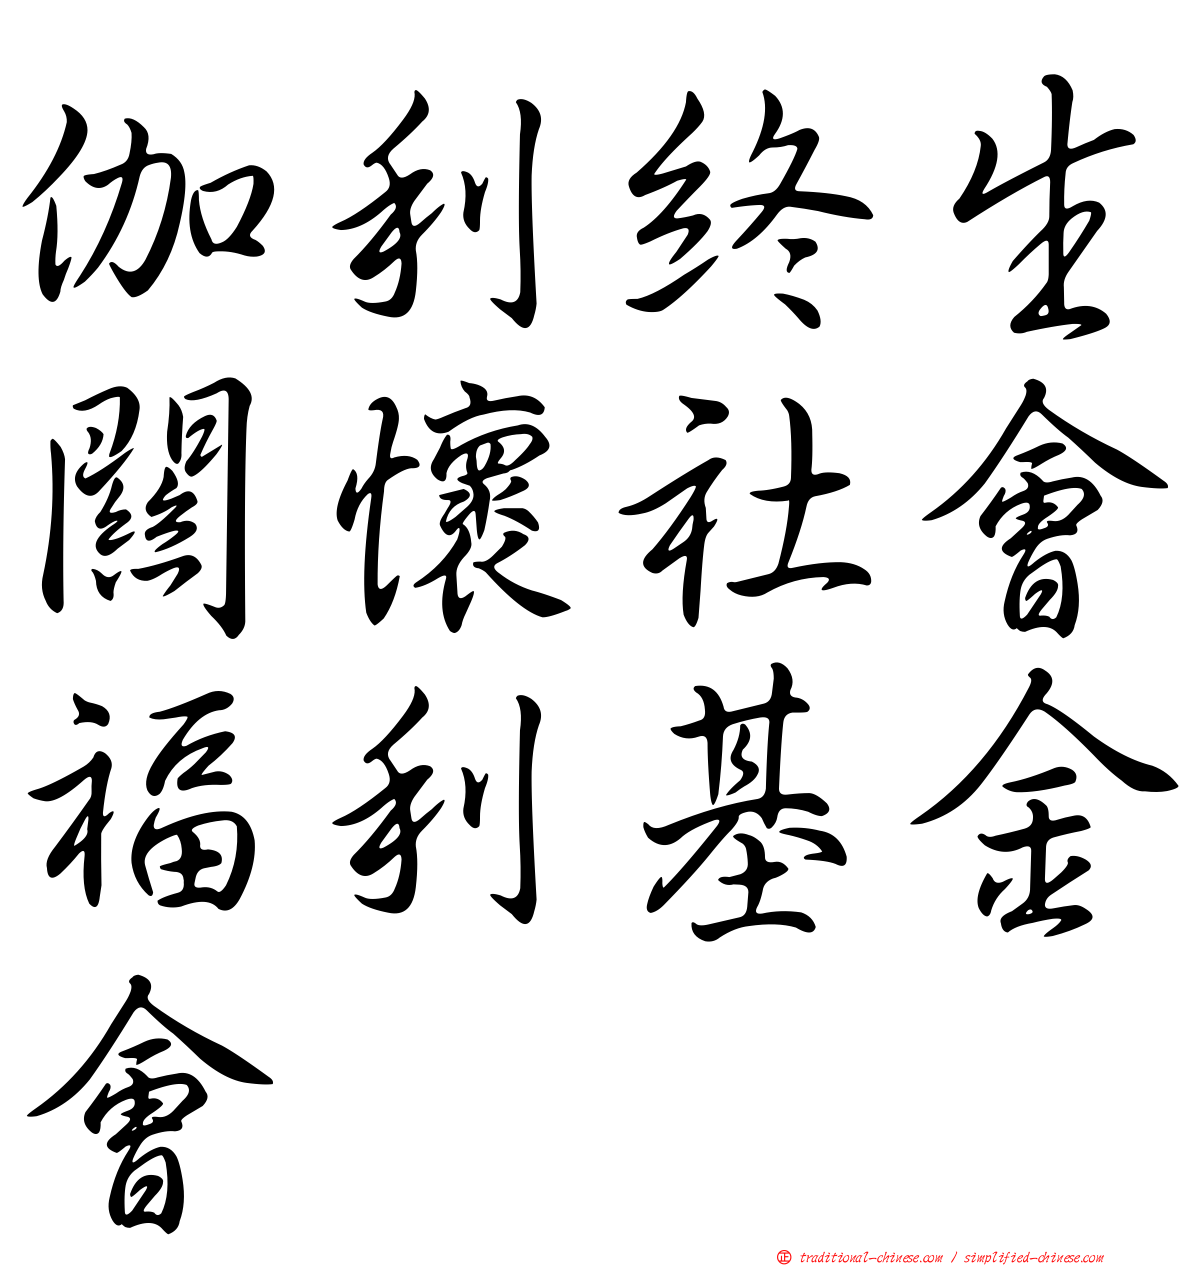 伽利終生
關懷社會
福利基金
會
正 traditional-chinese.com / simplified-chinese.com